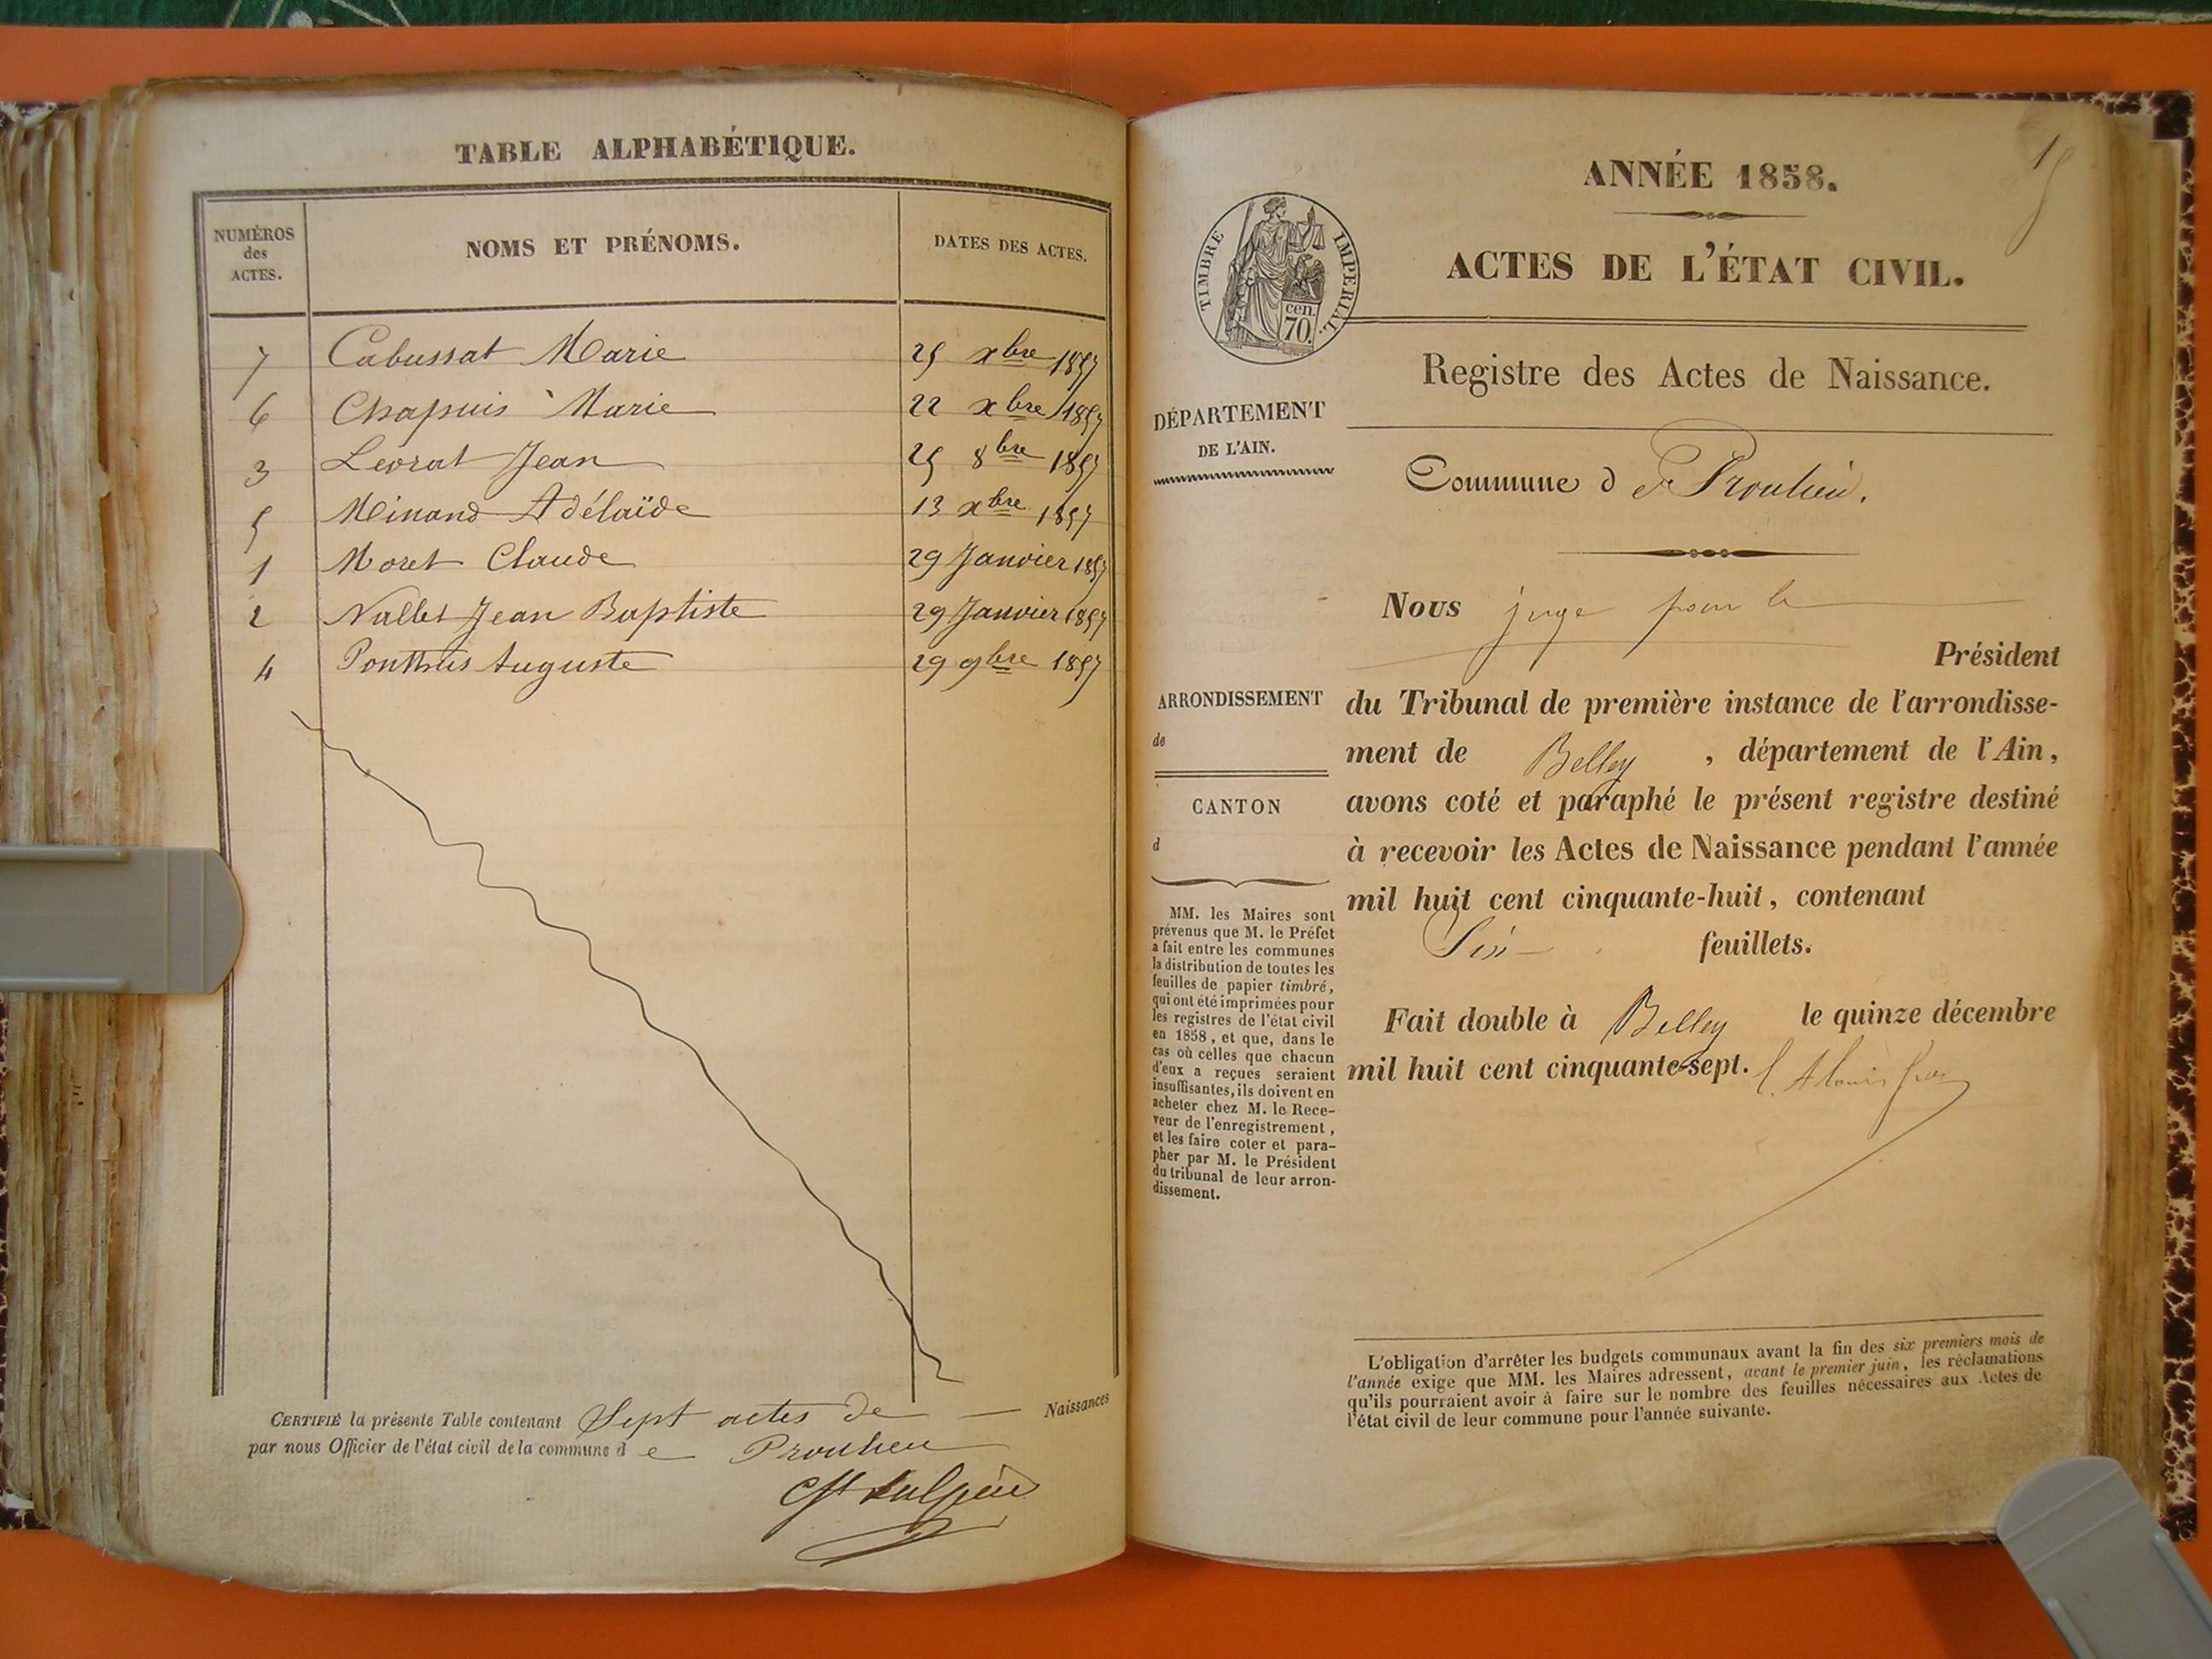 TABLE ALPHABÉTIQUE.
NUMÉROS
des
ACTES.
NOMS ET PRÉNOMS.
DATES DES ACTES.
7 Cabussat Marie 25 xbre 1857
6 Chapuis Marie 22 xbre 1857
3 Levrat Jean 25 8bre 1857
5 Minand Adélaïde 13 xbre 1857
1 Moret Claude 29 Janvier 1857
2 Nallet Jean Baptiste 29 Janvier 1857
4 Ponthus Auguste 29 9bre 1857
CERTIFIÉ la présente Table contenant Sept actes de Naissances
par nous Officier de l'état civil de la commune de Proulieu
1
ANNÉE 1858.
TIMBRE IMPÉRIAL.
cen.
70.
ACTES DE L'ÉTAT CIVIL.
Registre des Actes de Naissance.
DÉPARTEMENT
DE L'AIN.
Commune d e Proulieu.
Nous juge pour le
Président
ARRONDISSEMENT
de
CANTON
d
du Tribunal de première instance de l'arrondisse-
ment de Belley, département de l'Ain,
avons coté et paraphé le présent registre destiné
à recevoir les Actes de Naissance pendant l'année
mil huit cent cinquante-huit, contenant
Six feuillets.
Fait double à Belley le quinze décembre
mil huit cent cinquante-sept.
MM. les Maires sont
prévenus que M. le Préfet
a fait entre les communes
la distribution de toutes les
feuilles de papier timbré,
qui ont été imprimées pour
les registres de l'état civil
en 1858, et que, dans le
cas où celles que chacun
d'eux a reçues seraient
insuffisantes, ils doivent en
acheter chez M. le Rece-
veur de l'enregistrement,
et les faire coter et para-
pher par M. le Président
du tribunal de leur arron-
dissement.
L'obligation d'arrêter les budgets communaux avant la fin des six premiers mois de
l'année exige que MM. les Maires adressent, avant le premier juin, les réclamations
qu'ils pourraient avoir à faire sur le nombre des feuilles nécessaires aux Actes de
l'état civil de leur commune pour l'année suivante.